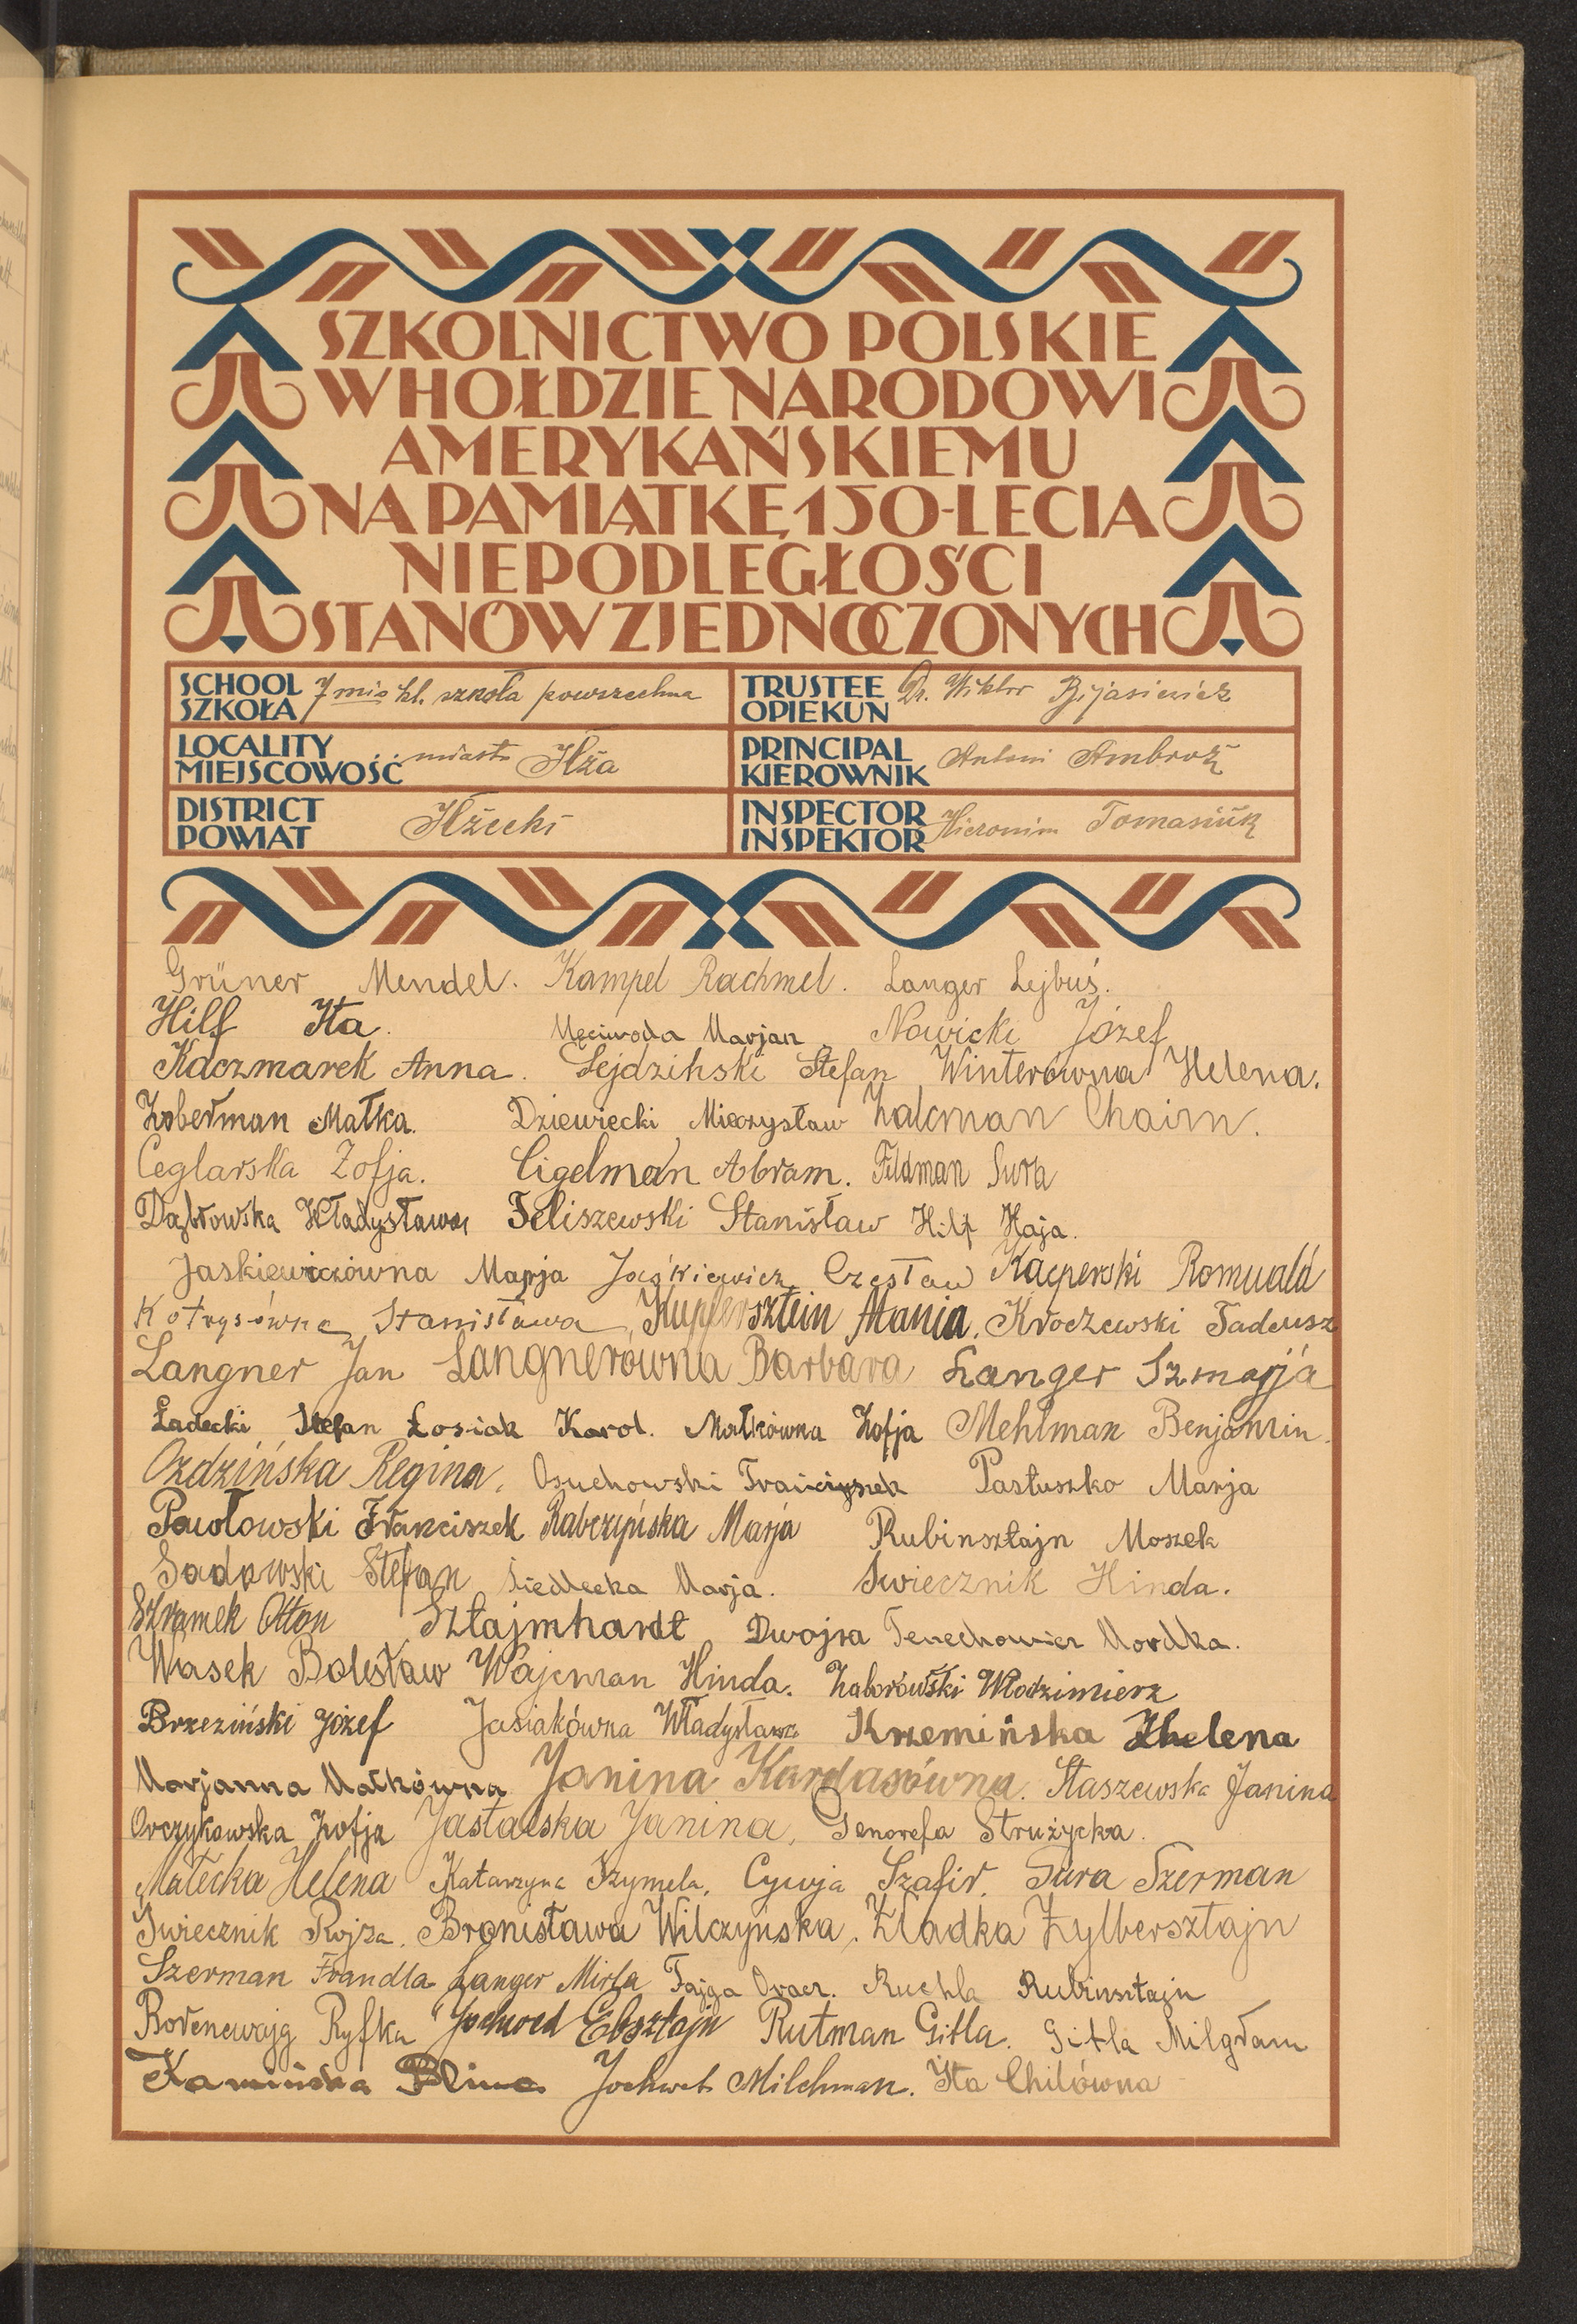 SZKOLNICTWO POLSKIE
W HOŁDZIE NARODOWI
AMERYKAŃSKIEMU
NA PAMIĄTKĘ 150-LECIA
NIEPODLEGŁOŚCI
STANÓW ZJEDNOCZONYCH
SCHOOL SZKOŁA 7 mio kl. szkoła powszechna
TRUSTEE OPIEKUN Dr. Wiktor
LOCALITY MIEJSCOWOŚĆ miasto Iłża
PRINCIPAL KIEROWNIK Antoni Ambroż
DISTRICT POWIAT Iłżecki
INSPECTOR INSPEKTOR Hieronim Tomasiuk
Grüner Mendel. Kampel Rachmel. Langer Lejbuś.
Hilf Ita. Męciwoda Marjan Nowicki Józef
Kaczmarek Anna. Sejdziński Stefan Winterówna Helena.
Zoberman Małka. Dziewięcki Mieczysław Zalcman Chaim.
Ceglarska Zofja. Cigelman Abram. Feldman Sura
Dąbrowska Władysława Feliszewski Stanisław Hilf Haja.
Jaskiewiczówna Marja Jaśkiewicz Czesław Kacperski Romuald
Kotrysówna Stanisława Kupfersztein Mania. Kroczewski Tadeusz
Langner Jan Langnerówna Barbara Langer Szmarja
Ładecki Stefan Łosiak Karol. Małkówna Zofja Mehlman Benjamin.
Ozdzińska Regina. Osuchowski Franciszek Pastuszko Marja
Pawłowski Franciszek Rabczyńska Marja Rubinsztajn Moszek
Sadowski Stefan Siedlecka Marja. Swiecznik Hinda.
Szramek Otton Sztajmhardt Dwojra Mordka.
Wasek Bolesław Wajcman Hinda. Zaborowski Włodzimierz
Brzeziński Józef Jasiakówna Władysława Krzemińska Helena
Marjanna Małkówna Janina Kardasówna. Staszewska Janina
Orczykowska Zofja Jastalska Janina. Genowefa Strużycka.
Małecka Helena Katarzyna Szymela. Cywja Szafir. Sura Szerman
Swiecznik Rojza. Bronisława Wilczyńska. Zładka Zylbersztajn
Szerman Frandla Langer Mirla Fajga Ruchla Rubinsztajn
Ryfka Jochwed Ebsztajn Rutman Gitla. Gitla Milgram
Kamińska Blima Jochwet Milchman. Ita Chilówna